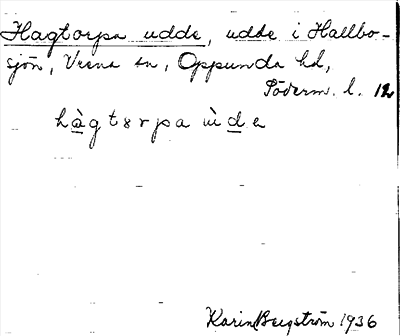 Hagtorpa udde, udde i Hallbo-
sjön, Vrena sn, Oppunda hd,
Söderm. l. 12
hàgtorpa ùde
Karin Bergström 1936